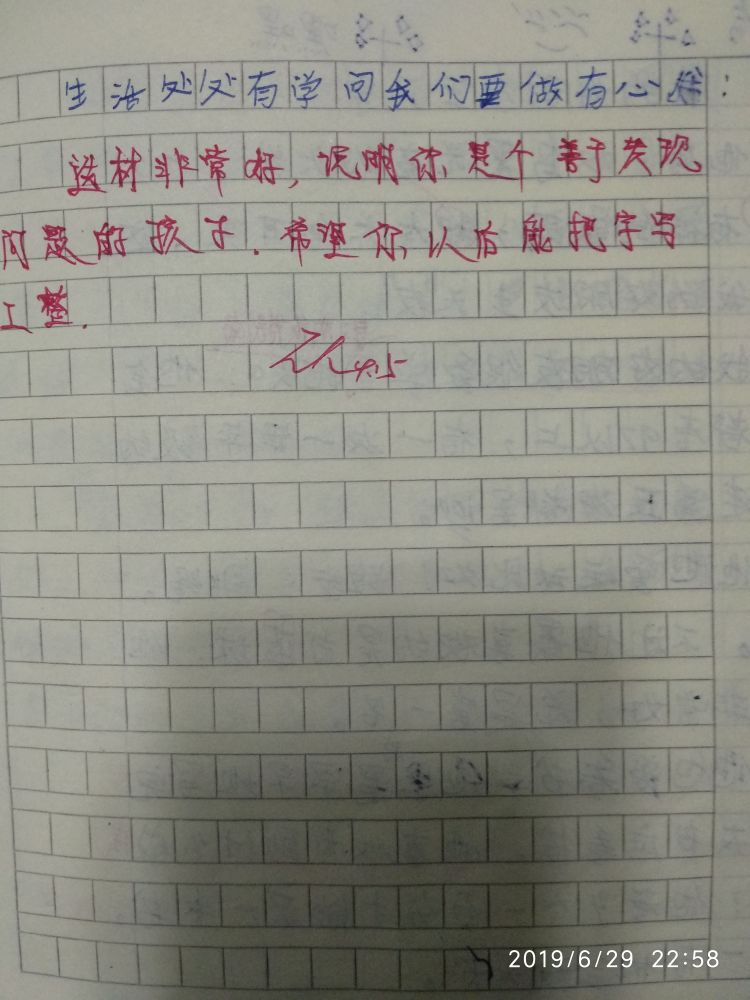 生活处处有学问我们要做有心
选材非常好，说明你是个善于发现
问题的孩子．希望你以后能把字写
工整．
4.5
2019/6/29 22:58